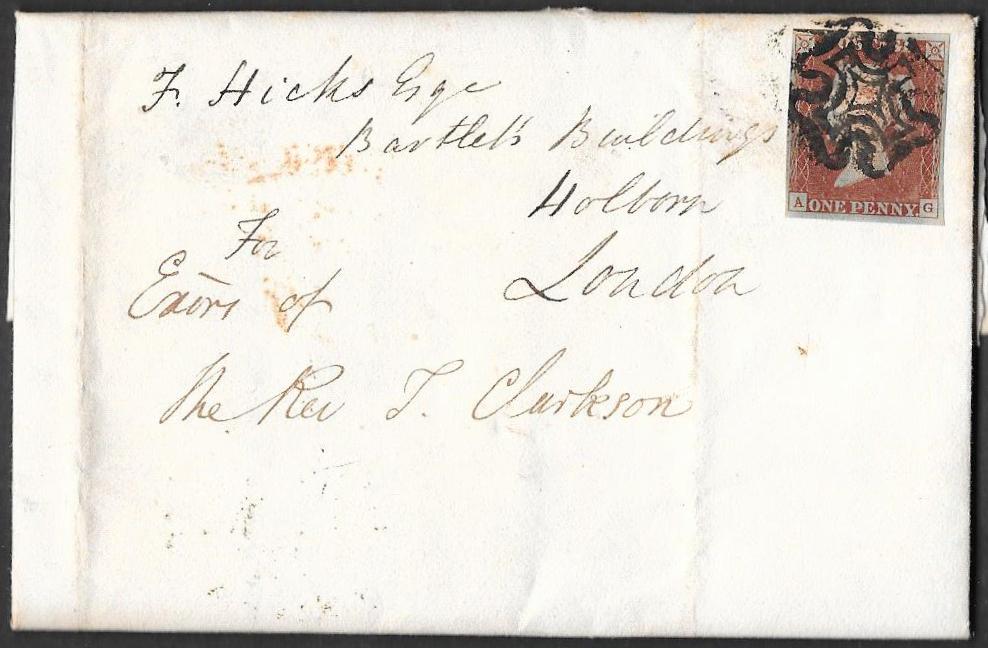 F. Hicks Esqe
Bartlet's Buildings
Holborn
London
For
Exōrs of
The Rev T. Clarkson
A ONE PENNY. G